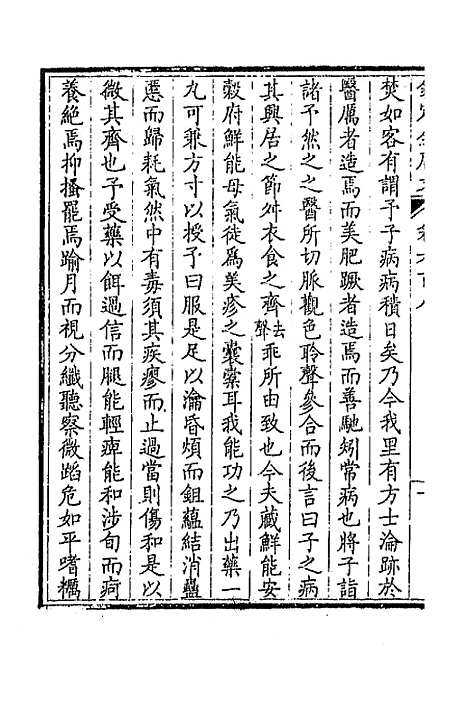 焚如客有謂予子病病積日矣乃今我里有方士淪跡於
醫厲者造焉而美肥蹶者造焉而善馳矧常病也將子詣
諸予然之之醫所切脈觀色聆聲參合而後言曰子之病
其興居之節舛衣食之齊去聲乖所由致也今夫藏鮮能安
穀府鮮能母氣徒為美疹之囊橐耳我能功之乃出藥一
丸可兼方寸以授予曰服是足以瀹昏煩而鉏蘊結消蠱
慝而歸耗氣然中有毒須其疾瘳而止過當則傷和是以
微其齊也予受藥以餌過信而腿能輕痺能和涉旬而疴
養絶焉抑搔罷焉踰月而視分纖聽察微蹈危如平嗜糲